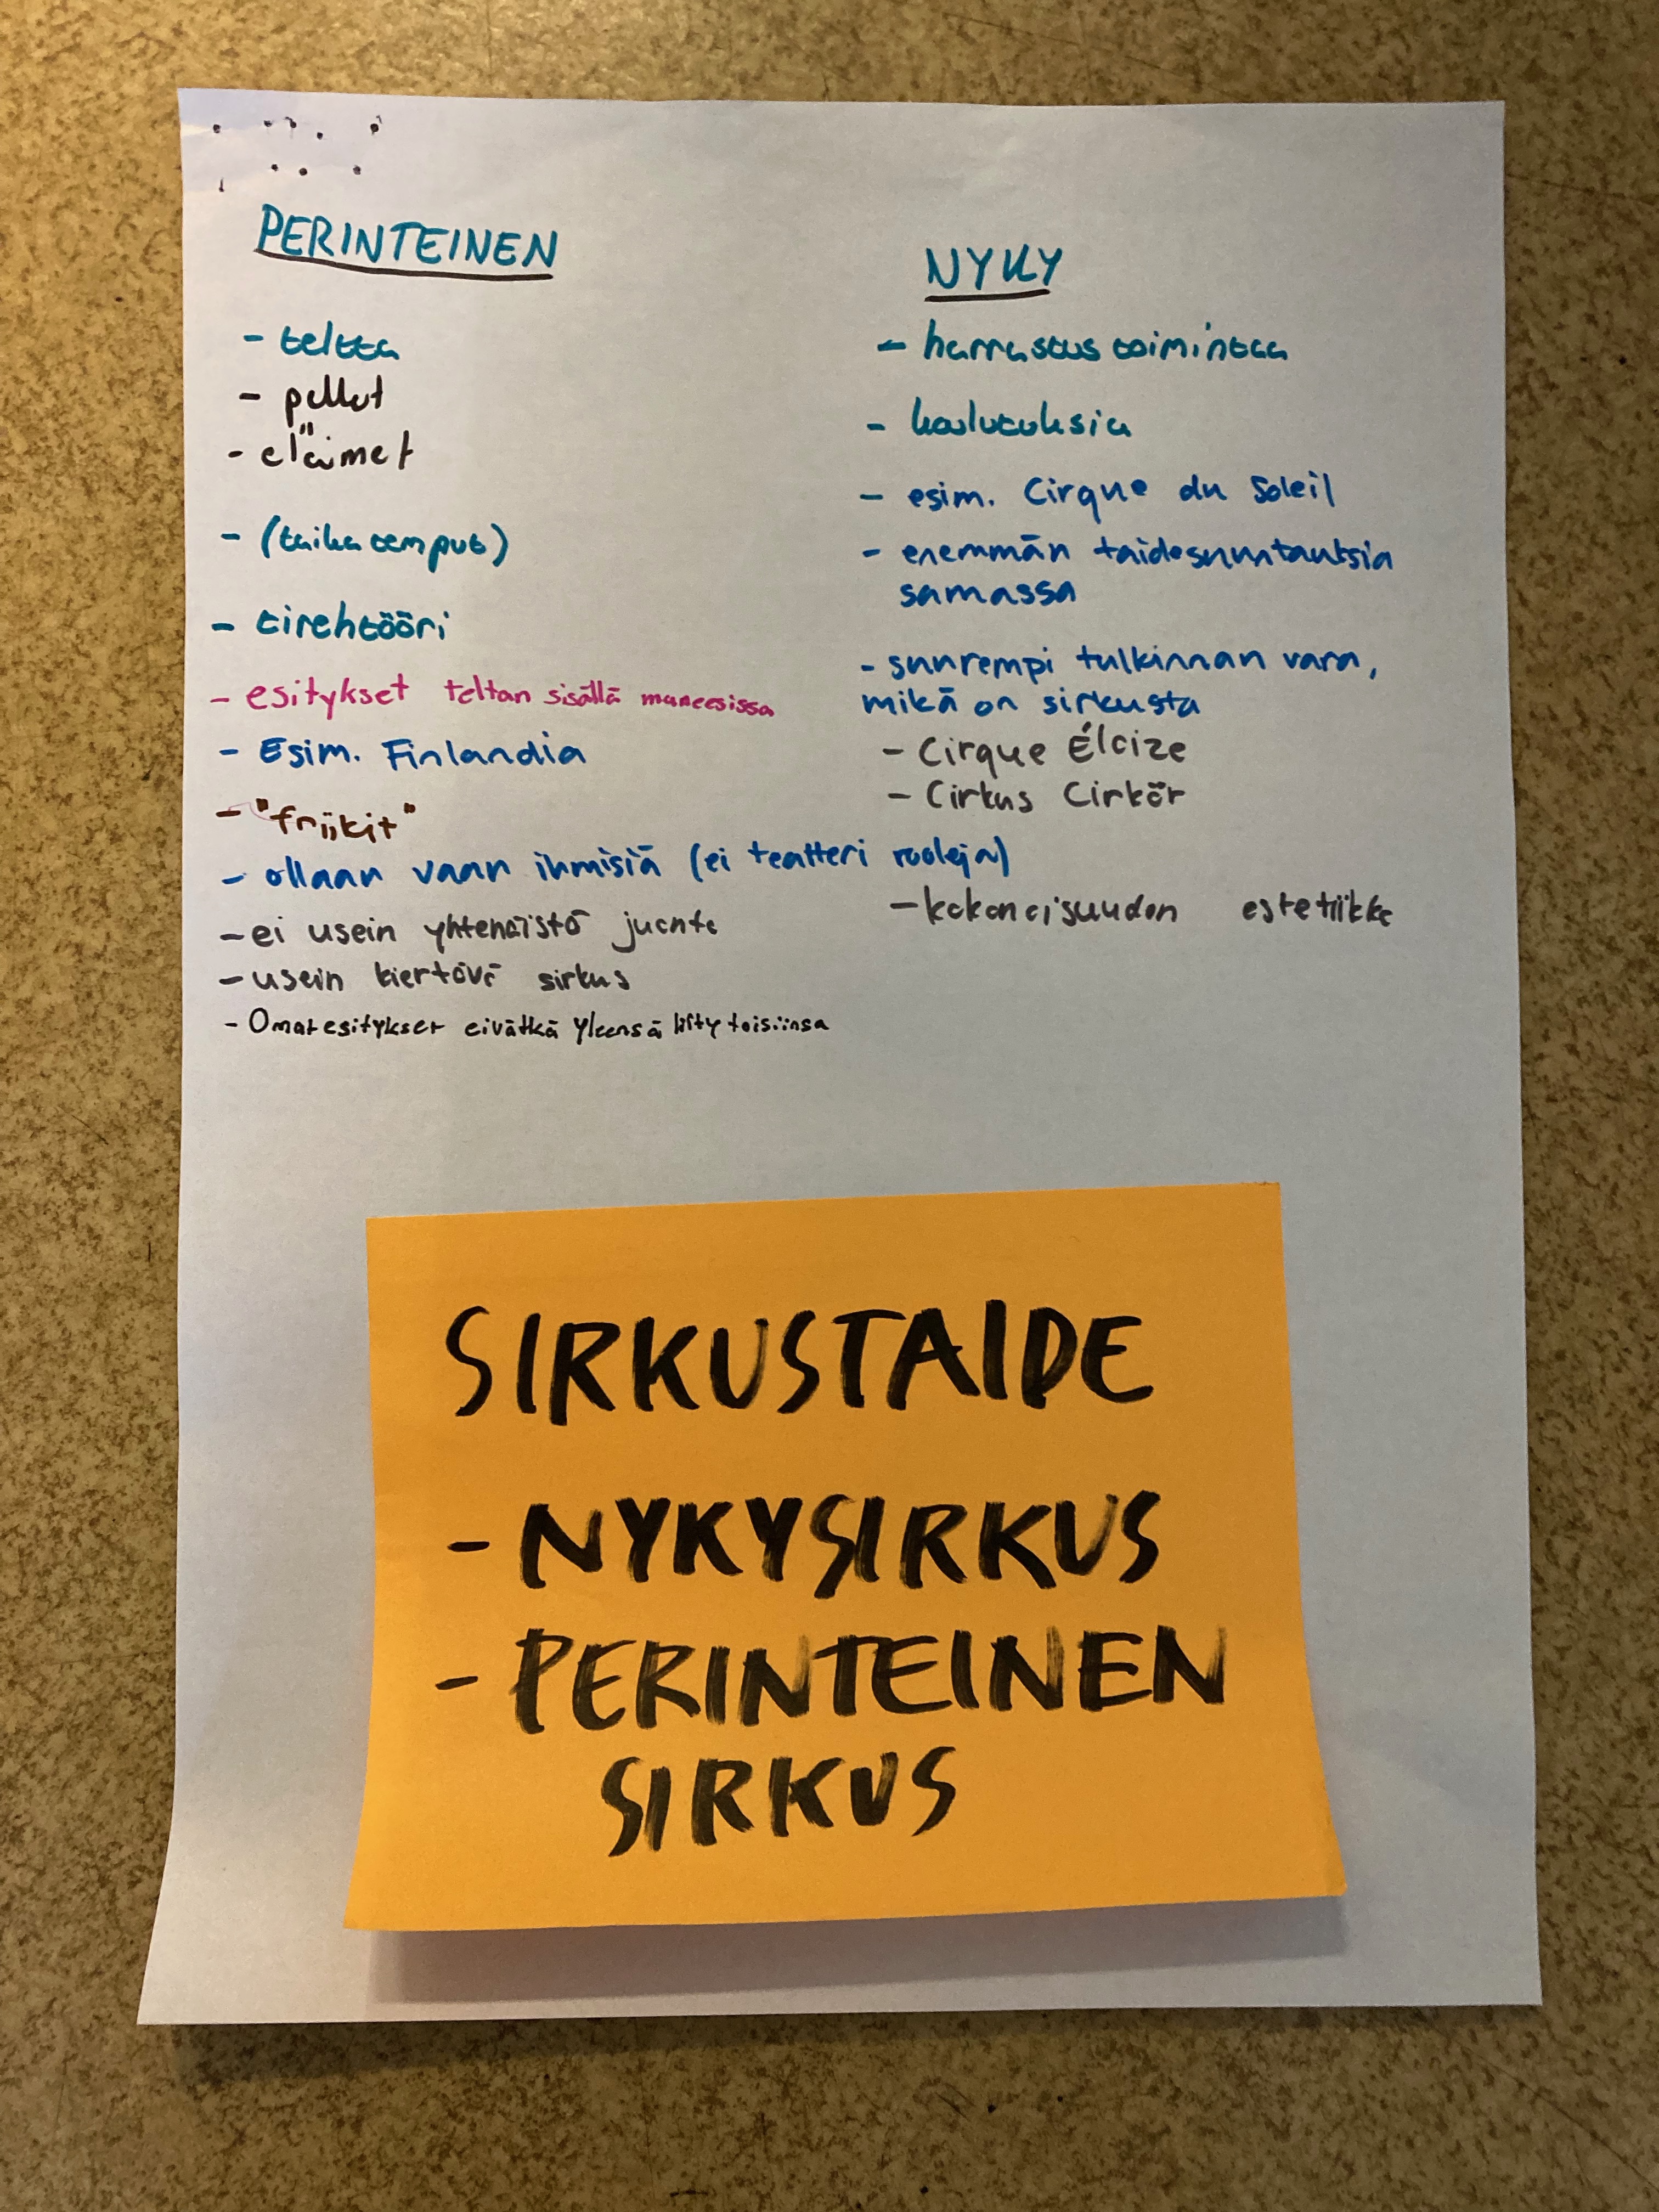 PERINTEINEN
- teltta
- pellet
- eläimet
- (taikatemput)
- tirehtööri
- esitykset teltan sisällä maneesissa
- Esim. Finlandia
- "friikit"
- ollaan vaan ihmisiä (ei teatteri rooleja)
- ei usein yhtenäistä juonta
- usein kiertävä sirkus
- Omat esitykset eivätkä yleensä liity toisiinsa
NYKY
- harrastustoimintaa
- koulutuksia
- esim. Cirque du Soleil
- enemmän taidesuuntauksia
samassa
- suurempi tulkinnan vara,
mikä on sirkusta
- Cirque Éloize
- Cirkus Cirkör
- kokonaisuuden estetiikka
SIRKUSTAIDE
- NYKYSIRKUS
- PERINTEINEN
SIRKUS